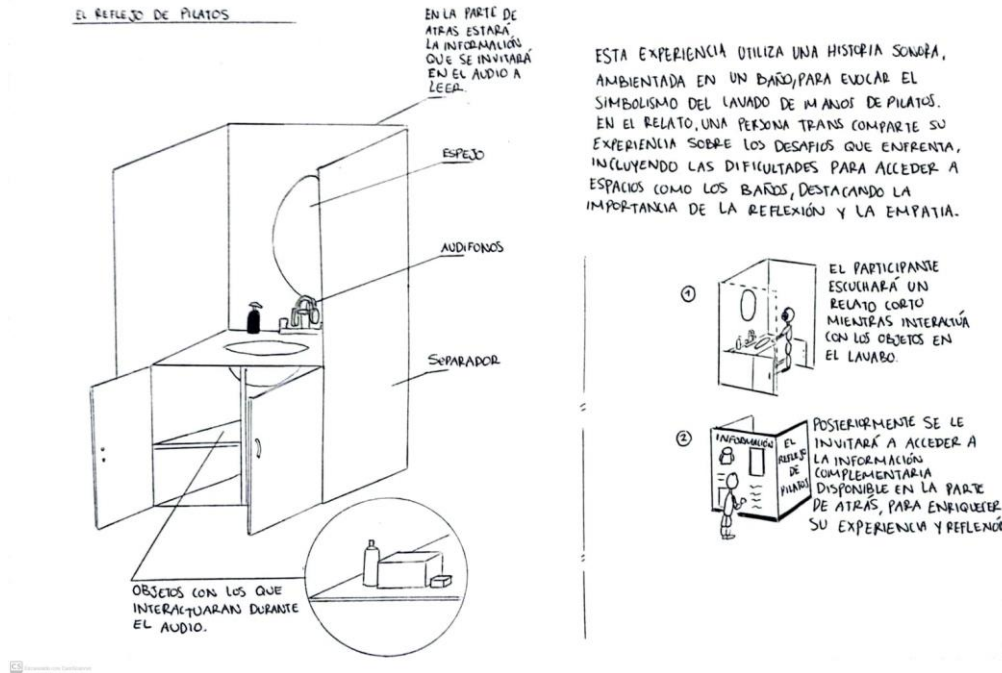 EL REFLEJO DE PILATOS
EN LA PARTE DE
ATRAS ESTARÁ
LA INFORMACIÓN
QUE SE INVITARÁ
EN EL AUDIO A
LEER.
ESPEJO
AUDIFONOS
SEPARADOR
OBJETOS CON LOS QUE
INTERACTUARAN DURANTE
EL AUDIO.
ESTA EXPERIENCIA UTILIZA UNA HISTORIA SONORA,
AMBIENTADA EN UN BAÑO, PARA EVOCAR EL
SIMBOLISMO DEL LAVADO DE MANOS DE PILATOS.
EN EL RELATO, UNA PERSONA TRANS COMPARTE SU
EXPERIENCIA SOBRE LOS DESAFIOS QUE ENFRENTA,
INCLUYENDO LAS DIFICULTADES PARA ACCEDER A
ESPACIOS COMO LOS BAÑOS, DESTACANDO LA
IMPORTANCIA DE LA REFLEXIÓN Y LA EMPATIA.
1
EL PARTICIPANTE
ESCUCHARÁ UN
RELATO CORTO
MIENTRAS INTERACTÚA
CON LOS OBJETOS EN
EL LAVABO.
2
INFORMACIÓN
EL
REFLEJO
DE
PILATOS
POSTERIORMENTE SE LE
INVITARÁ A ACCEDER A
LA INFORMACIÓN
COMPLEMENTARIA
DISPONIBLE EN LA PARTE
DE ATRÁS, PARA ENRIQUECER
SU EXPERIENCIA Y REFLEXIÓN
CS Escaneado con CamScanner